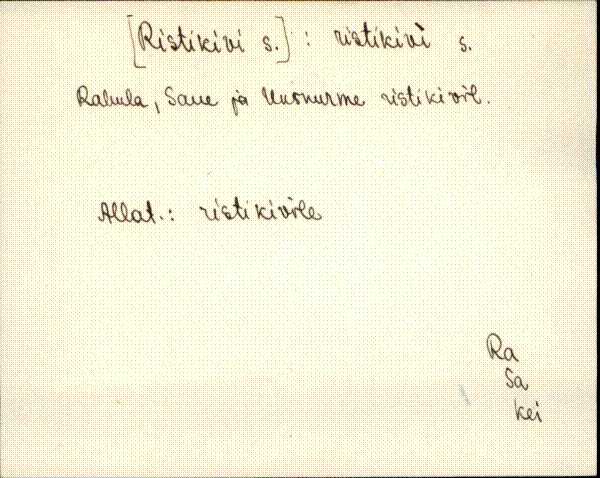 [Ristikivi s.] : ristikivì s.
Rahula, Saue ja Uusnurme ristikivil.
Allat.: ristikivile
Ra
Sa
Kei